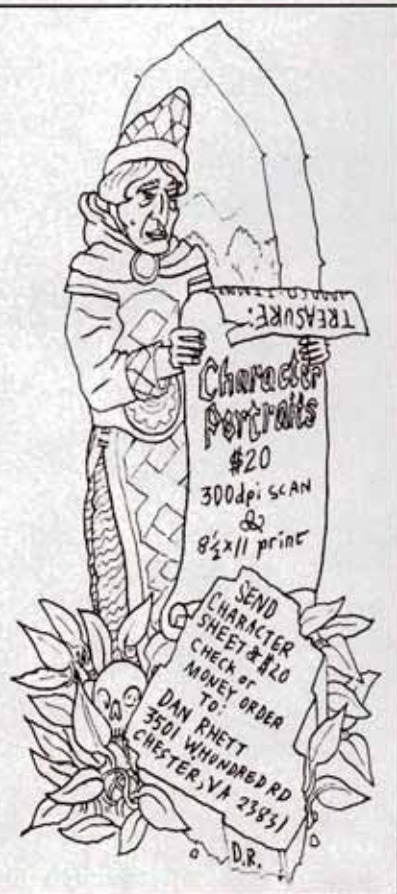 TREASURE:
Character
Portraits
$20
300dpi SCAN
&
8½x11 print
SEND
CHARACTER
SHEET & $20
CHECK or
MONEY ORDER
TO:
DAN RHETT
3501 WHUNDRED RD
CHESTER, VA 23831
D.R.